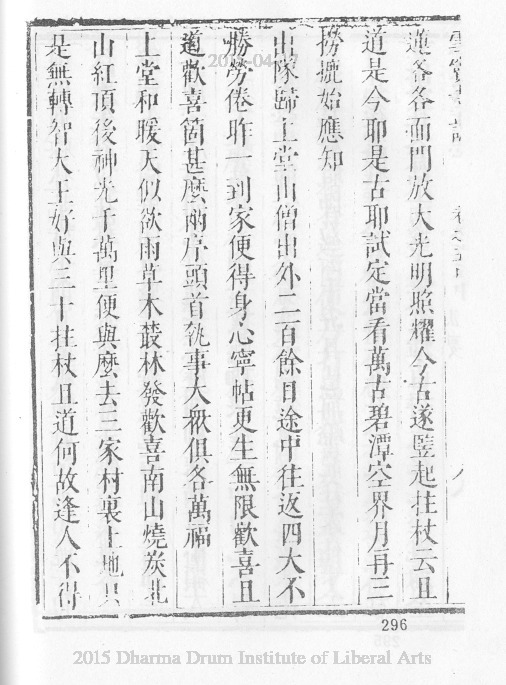 蓮各各面門放大光明照耀今古遂豎起拄杖云且
道是今耶是古耶試定當看萬古碧潭空界月再三
撈摝始應知
出隊歸上堂山僧出外二百餘日途中往返四大不
勝勞倦昨一到家便得身心寧帖更生無限歡喜且
道歡喜箇甚麼兩序頭首執事大衆俱各萬福
上堂和暖天似欲雨草木叢林發歡喜南山燒炭北
山紅頂後神光千萬里便與麼去三家村裏土地只
是無轉智大王好與三十拄杖且道何故逢人不得
296
2015 Dharma Drum Institute of Liberal Arts